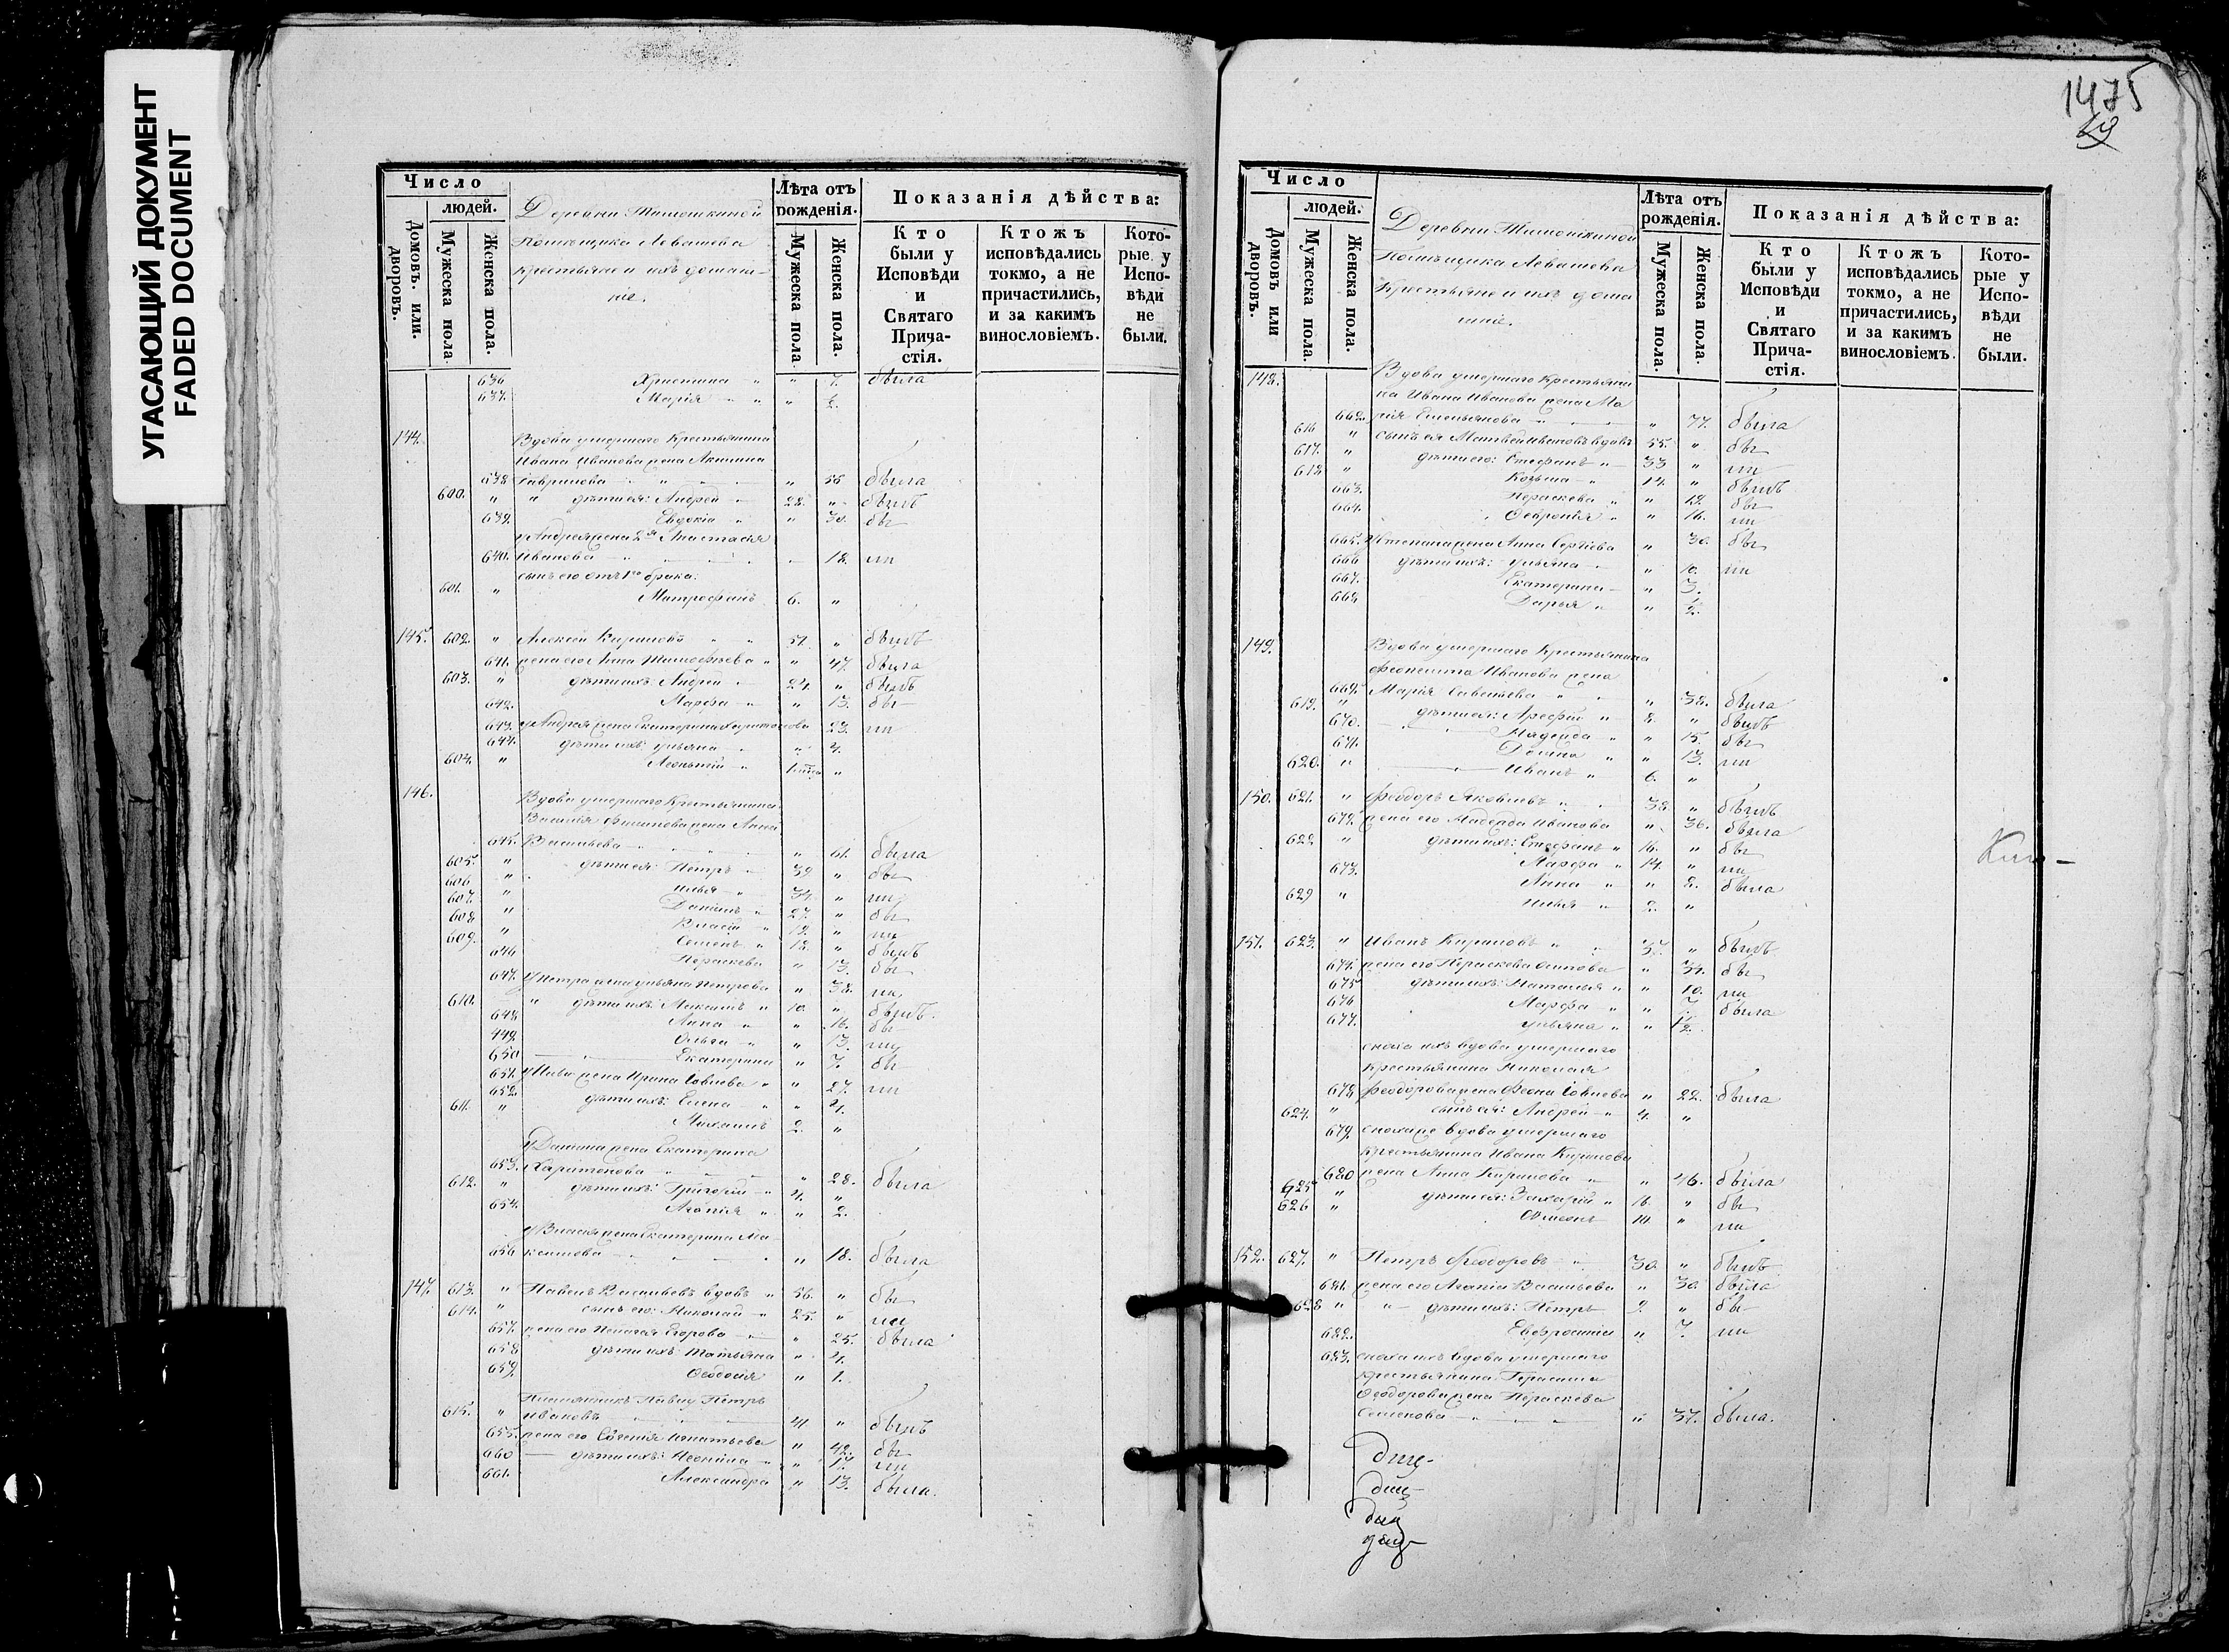 УГАСАЮЩИЙ ДОКУМЕНТ
FADED DOCUMENT
Число
людей.
Домовъ. или. дворовъ.
Мужеска пола.
Женска пола.
Деревни Тимошкиной
Помѣщика Левашева
крестьяне и ихъ домаш-
ніе.
Лѣта отъ рожденія.
Мужеска пола
Женска пола.
Показанія дѣйства:
Кто были у Исповѣди и Святаго Прича- стія.
Ктожъ исповѣдались токмо, а не причастились, и за какимъ винословіемъ.
Кото- рые у Испо- вѣди не были.
636 Христина " " 7. была
637. Марія " " 1/2.
144. Вдова умершаго Крестьянина
Ивана Иванова жена Акилина
638 Гаврилова " 55 была
600. " " дѣти ея: Андрей 28. " былъ
639. Евдокія " 30. бы
у Андрея жена 2я Анастасія
640. Иванова 18. ли
сынъ его отъ 1го брака:
601. " Митрофанъ 6. "
145. 602. " Алексей Кириловъ 51. " былъ
641. жена его Анна Тимофѣева " " 47. была
603. " дѣти ихъ: Андрей 24. " былъ
642. Марфа " 13. бы
643. у Андрея жена Екатерина Харитонова 23. ли
644. дѣти ихъ: Ульяна " 4.
604. " Леонтій "
146. Вдова умершаго Крестьянина
Василія Филипова жена Анна
645. Васильева " 61. была
605. " дѣти ея: Петръ 39 " бы
606 " Илья 34. " ли
607. " Даніилъ 27. " бы
608. " Власій 19. " ли
609. " Семенъ " 12. " былъ
646 Параскева " 13. бы
647. у Петра жена Ульяна Петрова " 38. ли
610. " дѣти ихъ: Максимъ " 10. " былъ.
648 Анна " 16. бы
449. Ольга " 13. ли
650 Екатерина " 7. бы
651. у Ильи жена Ирина Савлева " " 27. ли
652. дѣти ихъ: Елена " 4.
611. " Михаилъ 2. "
у Даніила жена Екатерина
653. Харитонова " 28. была
612. " дѣти ихъ: Григорій 4. "
654. Агапія " " 2.
у Власія жена Екатерина Ма-
656 ксимова " 18. была
147. 613. " Павелъ Васильевъ вдовъ " 56. " бы
614. " сынъ его: Николай " 25. " ли
657. жена его Пелагея Егорова " 25. была
658 дѣти ихъ: Татьяна " 4.
659. Ѳеодосія " 1.
Племянникъ Павлу Петръ
615. " Ивановъ 41. " былъ
655. жена его Евгенія Игнатьева " 42. бы
660 дѣти ихъ: Неонила " 17. ли
661. Александра " 13. была.
1475
Число
людей.
Домовъ или дворовъ.
Мужеска пола.
Женска пола.
Деревни Тимошкиной
Помѣщика Левашева
Крестьяне и ихъ дома
шніе.
Лѣта отъ рожденія.
Мужеска пола.
Женска пола.
Показанія дѣйства:
Кто были у Исповѣди и Святаго Прича- стія.
Ктожъ исповѣдались токмо, а не причастились, и за какимъ винословіемъ.
Кото- рые у Испо- вѣди не были.
148. Вдова умершаго Крестьяни
на Ивана Иванова жена Ма
662. рія Емельянова " 77. была
616 " сынъ ея Матвей Ивановъ вдовъ 55. " бы
617. " дѣти его: Стефанъ 33 " ли
618. " Козьма 14. " былъ
663. Параскева " " 19. бы
664. Февронія " " 16. ли
665. У Стефана жена Анна Сергіева " 30. бы
666 дѣти ихъ: Ульяна " 10. ли
667. Екатерина " 3.
668 Дарья " " 1/2.
149. Вдова умершаго Крестьянина
Феоктиста Иванова жена
669. Марія Савельева " " 38. была
619. " дѣти ея: Арефій " 8. " былъ
670. Надежда " " 15. бы
671. Домна " " 13. ли
620. " Иванъ " 6. "
150. 621. " Феодоръ Яковлевъ 38. " былъ
672. жена его Надежда Иванова " 36. была
622 " дѣти ихъ: Стефанъ " 16. " бы
Марфа " 14. " ли
673. Анна " " 8. была
629 " Илья 2. "
151. 623. " Иванъ Кириловъ " 37. " былъ
674. жена его Параскева Осипова " 34. бы
675 дѣти ихъ: Наталья " " 10. ли
676 Марфа " " 7. была
677. Ульяна " " 1/2.
сноха ихъ вдова умершаго
Крестьянина Николая
678 Феодорова жена Фекла Савлева " 22. была
624. " сынъ ея: Андрей " 4. "
679. сноха же вдова умершаго
Крестьянина Ивана Кирилова
680 жена Анна Кирилова " 46. была
625 " дѣти ея: Захарій " 16. " бы
626 " 10. " ли
152. 627. " Петръ Феодоровъ 30. " былъ
681. жена его Агапія Васильева " 30. была
628 " " дѣти ихъ: Петръ 9. " бы
682. Евфросинія " 7. ли
683. сноха ихъ вдова умершаго
крестьянина Герасима
Ѳеодорова жена Параскева
Семенова " 37. была.